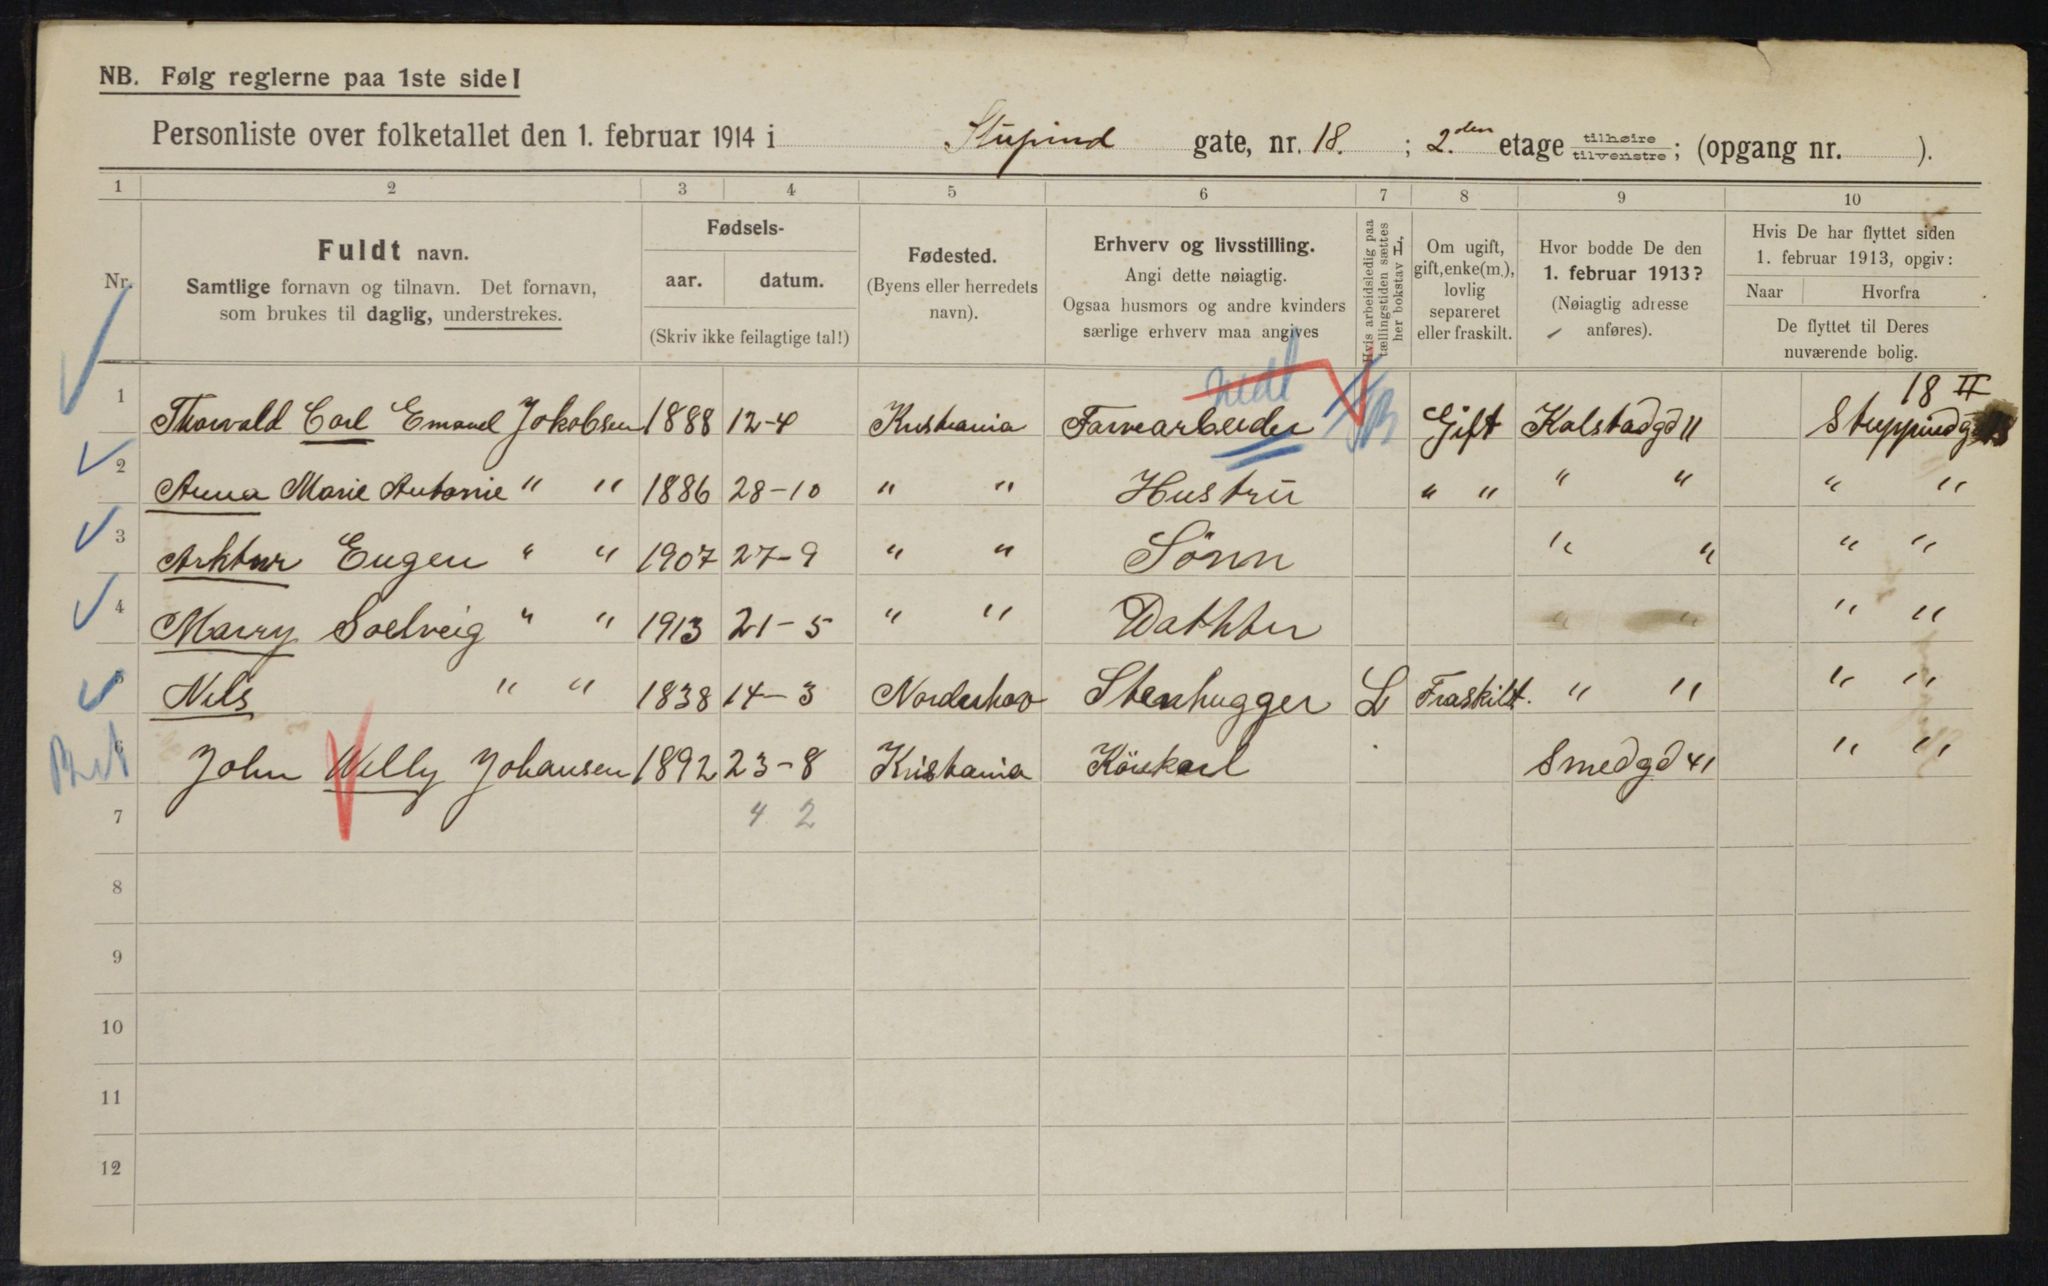 NB. Følg reglerne paa 1ste side!
Personliste over folketallet den 1. februar 1914 i Stupind gate, nr. 18. ; 2.den etage tilhøire tilvenstre ; (opgang nr. ).
1 2 3 4 5 6 7 8 9 10
Nr. Fuldt navn. Samtlige fornavn og tilnavn. Det fornavn, som brukes til daglig, understrekes.
Fødsels- aar. datum. (Skriv ikke feilagtige tal!)
Fødested. (Byens eller herredets navn).
Erhverv og livsstilling. Angi dette nøiagtig. Ogsaa husmors og andre kvinders særlige erhverv maa angives
Hvis arbeidsledig paa tællingstiden sættes her bokstav L.
Om ugift, gift, enke(m.), lovlig separeret eller fraskilt.
Hvor bodde De den 1. februar 1913? (Nøiagtig adresse anføres).
Hvis De har flyttet siden 1. februar 1913, opgiv: Naar Hvorfra De flyttet til Deres nuværende bolig.
18 II
1 Thorvald Carl Emanel Jokobsen 1888 12-4 Kristiania Farvearbeider Gift Kalstadgd 11 Stuppindgd
2 Anna Marie Antonie " " 1886 28-10 " " Hustru " " " " " "
3 Arktur Eugen " " 1907 27-9 " " Sönn " " " "
4 Marry Soelveig " " 1913 21-5 " " Dathter " " " "
5 Nils " " 1838 14-3 Norderhov Stenhugger L Fraskilt. " " " "
6 John Willy Johansen 1892 23-8 Kristiania Körekarl Smedgd 41 " "
7 4 2
8
9
10
11
12